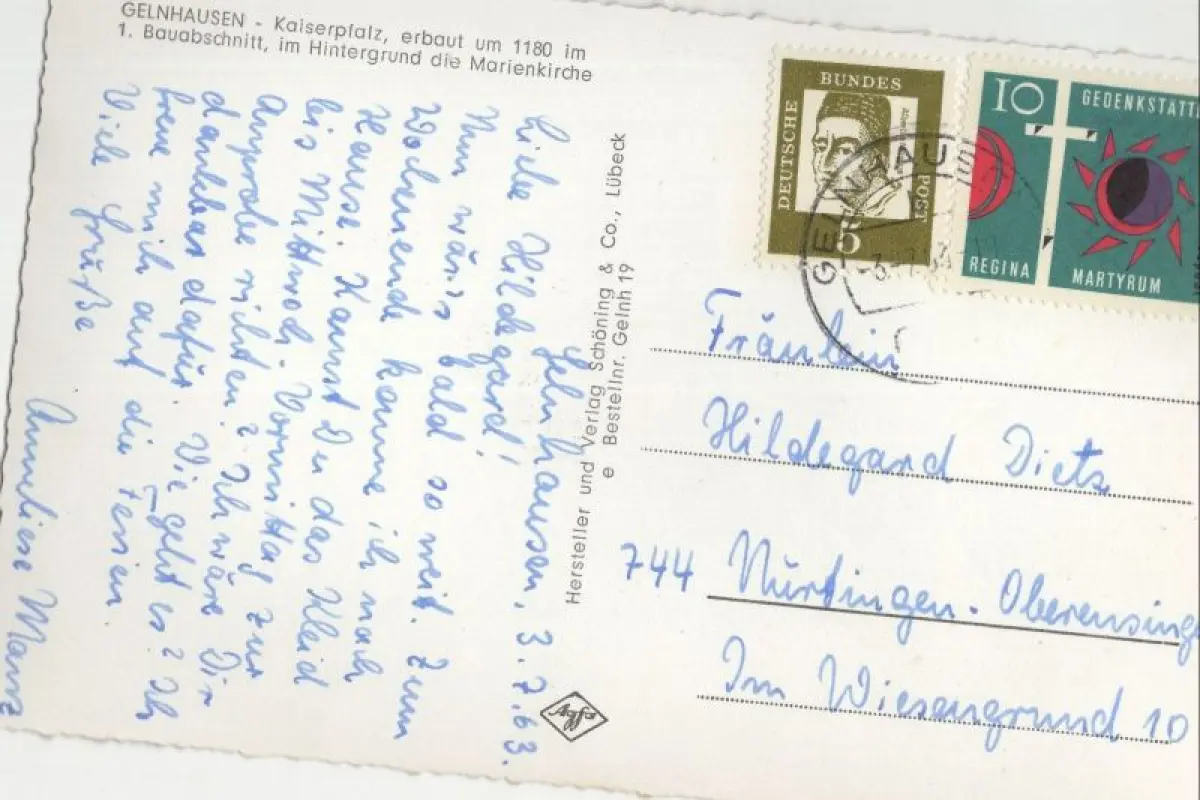 GELNHAUSEN - Kaiserpfalz, erbaut um 1180 im
1. Bauabschnitt, im Hintergrund die Marienkirche
Gelnhausen, 3.7.63.
Liebe Hildegard!
Nun wär's bald so weit. Zum
Wochenende komme ich nach
Hause. Kannst Du das Kleid
bis Mittwoch-Vormittag zur
Anprobe richten? Ich wäre Dir
dankbar dafür. Wie geht es? Ich
freue mich auf die Ferien.
Viele Grüße
Annliese
Hersteller und Verlag Schöning & Co., Lübeck
e Bestellnr. Gelnh 19
DEUTSCHE
BUNDES
POST
5
10
GEDENKSTÄTT
REGINA
MARTYRUM
GELNHAU
Fräulein
Hildegard Dietz
744 Nürtingen-Oberensing
Im Wiesengrund 10